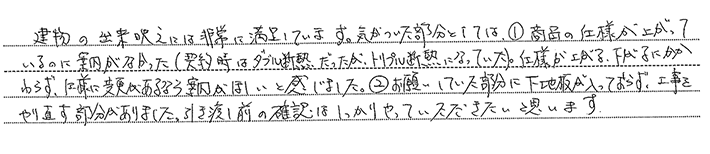 建物の出来映えには非常に満足しています。気がついた部分としては、①商品の仕様が上がって
いるのに案内がなかった(契約時はダブル断熱だったが、トリプル断熱になっていた)。仕様が上がる、下がるにかか
わらず、仕様に変更があるなら案内がほしいと感じました。②お願いしていた部分に下地板が入っておらず、工事を
やり直す部分がありました。引き渡し前の確認はしっかりやっていただきたいと思います。